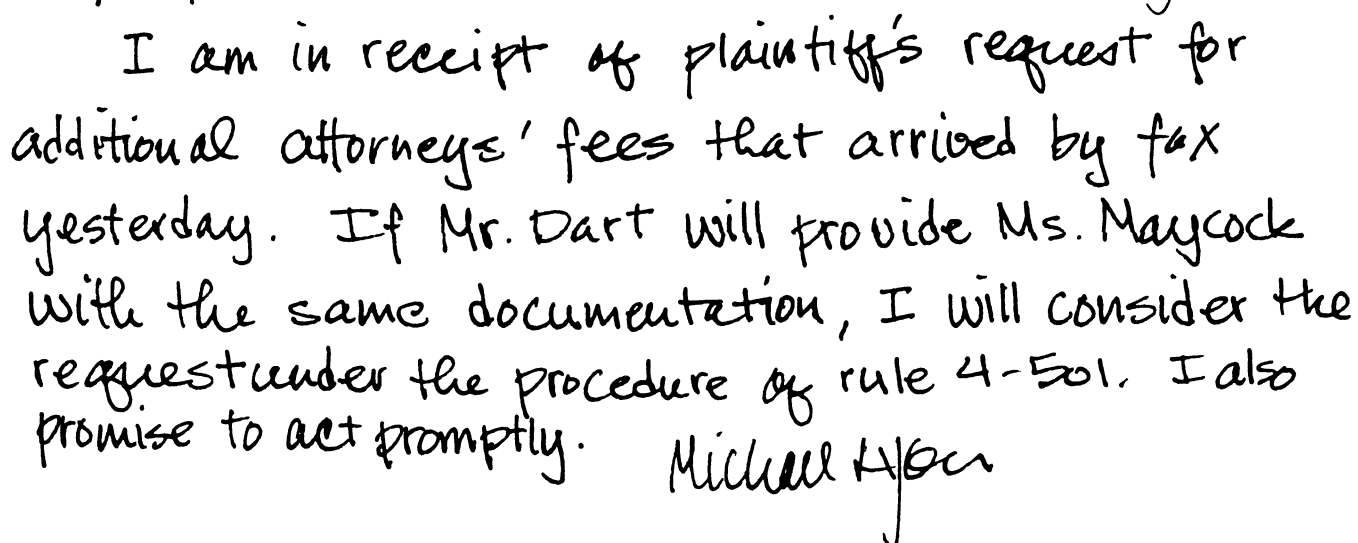 I am in receipt of plaintiff's request for
additional attorneys' fees that arrived by fax
yesterday. If Mr. Dart will provide Ms. Maycock
with the same documentation, I will consider the
request under the procedure of rule 4-501. I also
promise to act promptly. Michael